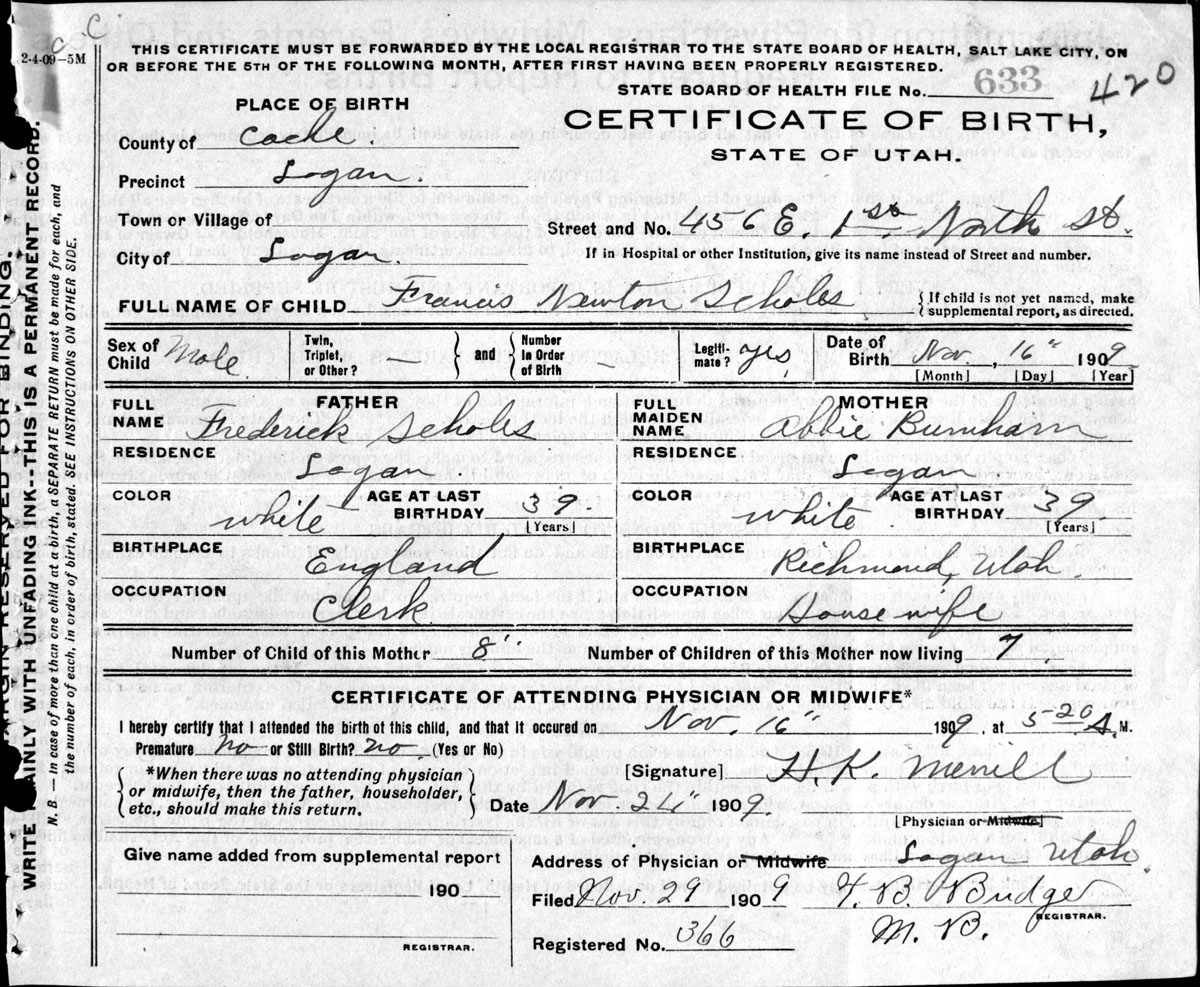 C C
2-4-09-5M
THIS CERTIFICATE MUST BE FORWARDED BY THE LOCAL REGISTRAR TO THE STATE BOARD OF HEALTH, SALT LAKE CITY, ON
OR BEFORE THE 5TH OF THE FOLLOWING MONTH, AFTER FIRST HAVING BEEN PROPERLY REGISTERED.
STATE BOARD OF HEALTH FILE No. 633 420
PLACE OF BIRTH
CERTIFICATE OF BIRTH,
STATE OF UTAH.
County of Cache.
Precinct Logan.
Town or Village of
Street and No. 456 E. 1st North St.
City of Logan.
If in Hospital or other Institution, give its name instead of Street and number.
FULL NAME OF CHILD Francis Newton Scholes
{ If child is not yet named, make supplemental report, as directed.
Sex of Child Male. Twin, Triplet, or Other? } and { Number in Order of Birth – Legitimate? yes Date of Birth Nov. 16", 1909
[Month] [Day] [Year]
FATHER
FULL NAME Frederick Scholes
RESIDENCE Logan.
COLOR white AGE AT LAST BIRTHDAY 39.
[Years]
BIRTHPLACE England
OCCUPATION Clerk.
MOTHER
FULL MAIDEN NAME Abbie Burnham
RESIDENCE Logan
COLOR white. AGE AT LAST BIRTHDAY 39
[Years]
BIRTHPLACE Richmond, Utah.
OCCUPATION Housewife
Number of Child of this Mother 8" Number of Children of this Mother now living 7
CERTIFICATE OF ATTENDING PHYSICIAN OR MIDWIFE*
I hereby certify that I attended the birth of this child, and that it occured on Nov. 16" 1909, at 5-20 A. M.
Premature no or Still Birth? no (Yes or No)
{ *When there was no attending physician
or midwife, then the father, householder,
etc., should make this return. }
[Signature] H. K. Merrill
Date Nov 24" 1909.
[Physician or Midwife]
Give name added from supplemental report
190
REGISTRAR.
Address of Physician or Midwife Logan Utah.
Filed Nov. 29 1909 B. Budge
REGISTRAR.
M. B.
Registered No. 366
MARGIN RESERVED FOR BINDING.
WRITE PLAINLY WITH UNFADING INK--THIS IS A PERMANENT RECORD.
N. B. — In case of more than one child at a birth, a SEPARATE RETURN must be made for each, and
the number of each, in order of birth, stated. SEE INSTRUCTIONS ON OTHER SIDE.